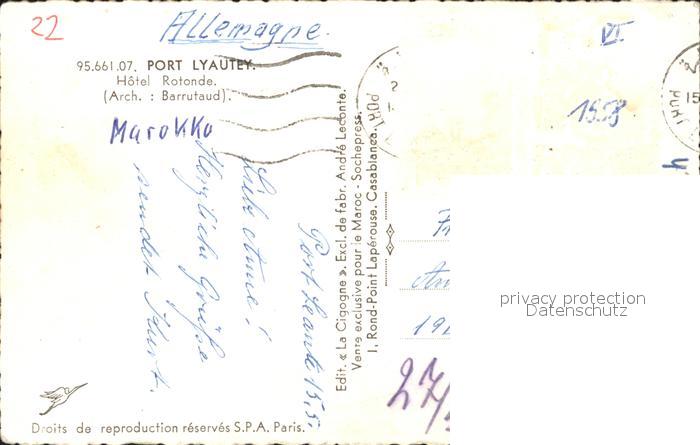 22
Allemagne.
95.661.07. PORT LYAUTEY.
Hôtel Rotonde.
(Arch. : Barrutaud).
Marokko
Port Leauté 15.5.
Liebe Anne!
Herzliche Grüße
sendet Kurt.
Edit. « La Cigogne ». Excl. de fabr. André Leconte.
Vente exclusive pour le Maroc - Sochepress.
1, Rond-Point Lapérouse. Casablanca.
VI
1558
15
4
27/
privacy protection
Datenschutz
Droits de reproduction réservés S.P.A. Paris.